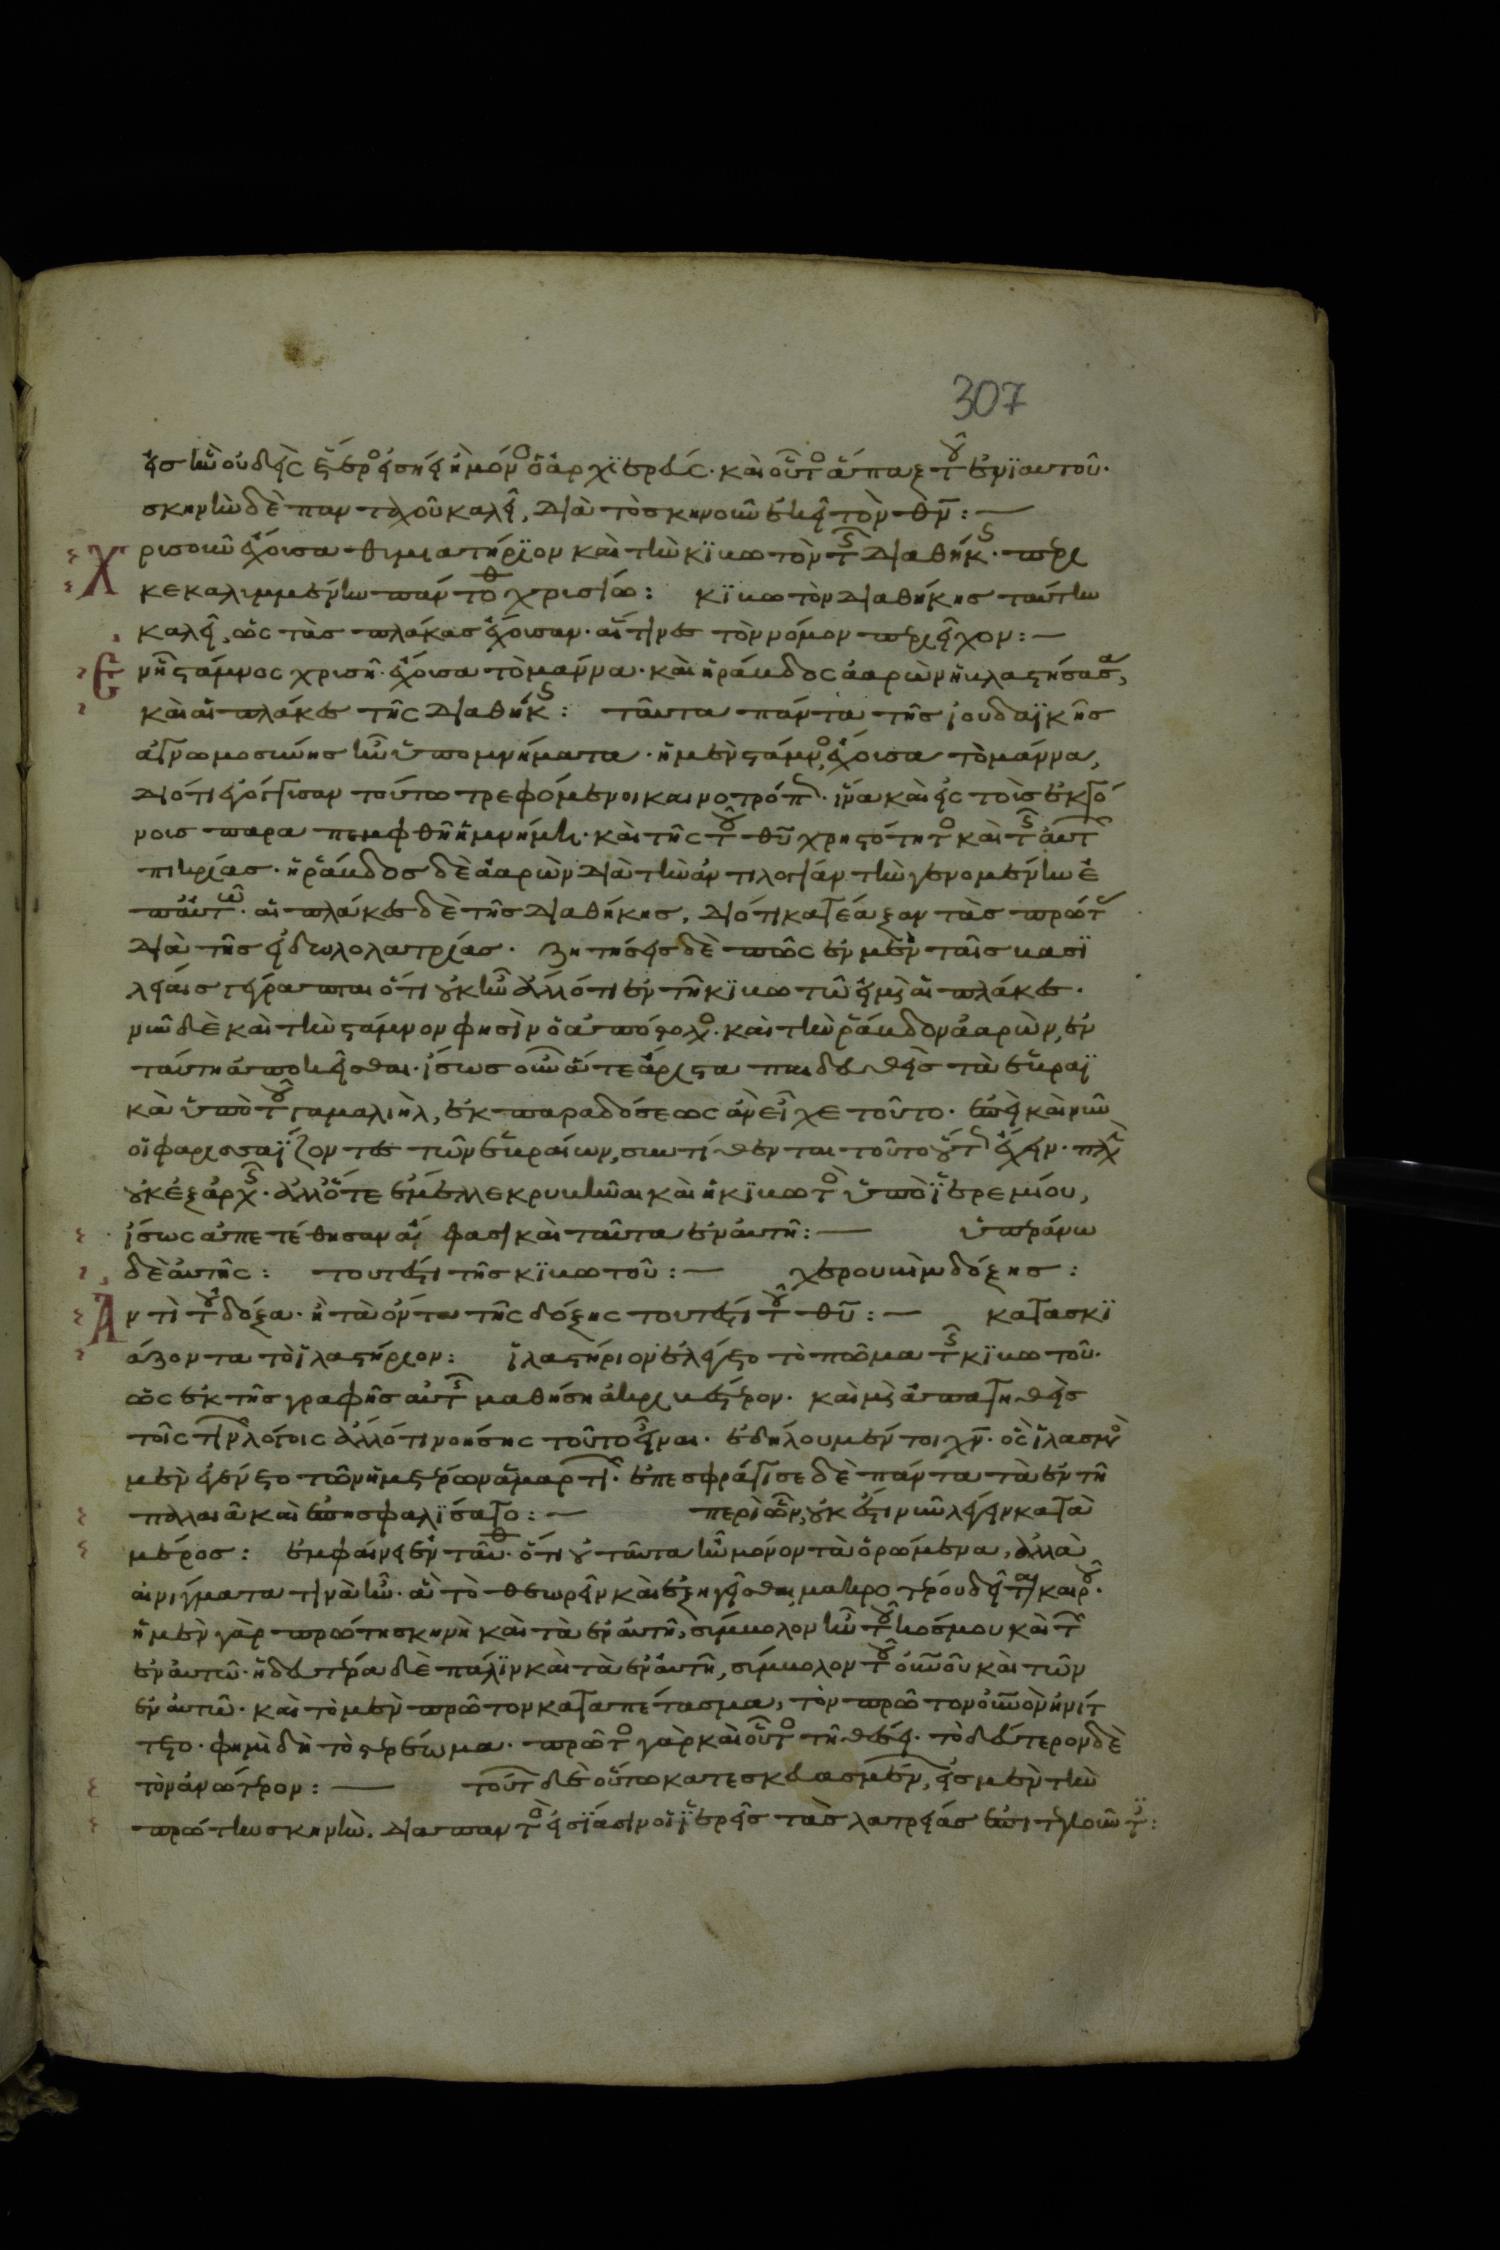 307
εἰς ἣν οὐδεὶς ἕτερος εἰσῄει ἢ μόνος ὁ ἀρχϊερεύς· καὶ οὗτος ἅπαξ τοῦ ἐνϊαυτοῦ·
σκηνὴν δὲ πανταχοῦ καλεῖ, διὰ τὸ σκηνοῦν ἐκεῖ τὸν θν̅:—
χρισοῦν ἔχουσα θιμιατήρϊον καὶ τὴν κϊβωτὸν τῆς διαθήκης· περι
κεκαλιμμένην πάντοθεν χρισίω: κϊβωτὸν διαθήκης ταύτην
καλεῖ, ὡς τὰς πλάκας ἔχουσαν· αἵτινες τὸν νόμον περιεῖχον:—
Ἐν ἧ στάμνος χρισῆ ἔχουσα τὸ μάννα· καὶ ἡ ράβδος ἀαρὼν ἡ βλαστήσασα,
καὶ αἱ πλάκες τῆς διαθήκης: ταῦτα πάντα τῆς ἰουδαϊκῆς
ἀγνωμοσύνης ἦν ὑπομνήματα· ἡ μὲν στάμνος ἔχουσα τὸ μάννα,
διότι ἐγόγγισαν τούτω τρεφόμενοι καινοτρόπως· ἵνα καὶ εἰς τοὺς ἐκγό
νοις παραπεμφθῆ ἡ μνήμη· καὶ τῆς τοῦ θυ̅ χρηστότητος καὶ τῆς αὐτῶν
πικρίας· ἡ ράβδος δὲ ἀαρὼν διὰ τὴν ἀντιλογίαν τὴν γενομένην ἐ
π' αὐτῶ· αἱ πλάκες δὲ τῆς διαθήκης, διότι κατέαξαν τὰς πρώτας
διὰ τῆς εἰδωλολατρίας· ζητήσεις δὲ πῶς ἐν μὲν ταῖς βασϊ
λείαις γέγραπται ὅτι οὐκ ἦν ἄλλό τι ἐν τῆ κϊβωτῶ εἰ μὴ αἱ πλάκες·
νῦν δὲ καὶ τὴν στάμνον φησὶν ὁ ἀπόστολος· καὶ τὴν ράβδον ἀαρὼν, ἐν
ταύτη ἀποκεῖσθαι· ἴσως οὖν ἅτε ἄριστα παιδευθεὶς τὰ ἑβραϊ
κὰ ὑπὸ τοῦ γαμαλιὴλ, ἐκ παραδόσεως ἂν εἶχε τοῦτο· ἐπεὶ καὶ νῦν
οἱ φαρισαΐζοντες τῶν ἑβραίων, συντίθενται τοῦτο οὕτως ἔχειν· πλὴν
οὐκ ἐξ ἀρχῆς· ἀλλ' ὅτε ἔμελλε κρυβῆναι καὶ ἡ κϊβωτὸς ὑπὸ ἱερεμίου,
ἴσως ἀπετέθησαν αἵ φασι καὶ ταῦτα ἐν αὐτῆ:— ὑπεράνω
δὲ αὐτῆς: τουτέστι τῆς κϊβωτοῦ:— χερουβὶμ δόξης:
Ἀντὶ τοῦ δόξα· ἢ τὰ ὄντα τῆς δόξης τουτέστι τοῦ θυ̅:— κατασκϊ
άζοντα τὸ ἱλαστήριον: ἱλαστήριον ἐλέγετο τὸ πῶμα τῆς κϊβωτοῦ·
ὡς ἐκ τῆς γραφῆς αὐτῆς μαθήση ἀκριβέστερον· καὶ μὴ ἀπατηθεὶς
τοῖς τινῶν λόγοις ἄλλό τι νοήσης τοῦτο εἶναι· ἐδήλου μέντοι χν̅· ὃς ἱλασμὸς
μὲν ἐγένετο τῶν ἡμετέρων ἁμαρτιῶν· ἐπεσφράγισε δὲ πάντα τὰ ἐν τῆ
παλαιᾶ καὶ ἐπησφαλίσατο:— περὶ ὧν, οὐκ ἔστι νῦν λέγειν κατὰ
μέρος: ἐμφαίνει ἐνταῦθα· ὅτι οὐ ταῦτα ἦν μόνον τὰ ὁρώμενα, ἀλλὰ
αἰνίγματα τινὰ ἦν· ἃ τὸ θεωρεῖν καὶ ἐξηγεῖσθαι μακροτέρου δεῖται καιροῦ·
ἡ μὲν γὰρ πρώτη σκηνὴ καὶ τὰ ἐν αὐτῆ, σύμβολον ἦν τοῦ κόσμου καὶ τῶν
ἐν αὐτῶ· ἡ δευτέρα δὲ πάλϊν καὶ τὰ ἐν αὐτῆ, σίμβολον τοῦ οὐ̅νοῦ καὶ τῶν
ἐν αὐτῶ· καὶ τὸ μὲν πρῶτον καταπέτασμα, τὸν πρῶτον οὐ̅νὸν ἠνίτ
τετο· φημὶ δὴ τὸ στερέωμα· πρῶτος γὰρ καὶ οὗτος τῆ θέσει· τὸ δεύτερον δὲ
τὸν ἀνώτερον:— τούτων δὲ οὕτω κατεσκευασμένων, εἰς μὲν τὴν
πρώτην σκηνὴν, διαπαντὸς εἰσΐασιν οἱ ἱερεῖς τὰς λατρείας ἐπιτελοῦντες: